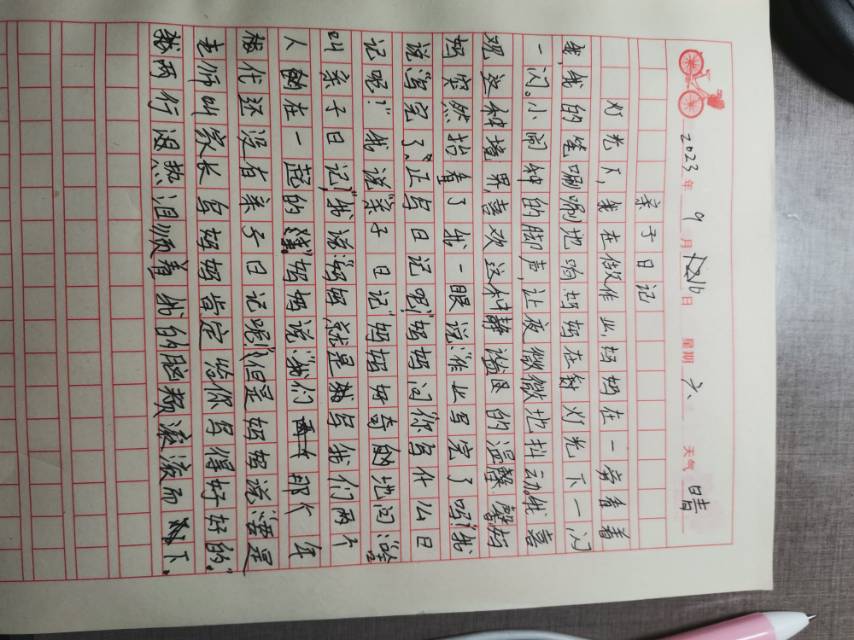 2023年 9月 16日 星期 六 天气 晴
亲子日记
灯光下,我在做作业妈妈在一旁看着
我,我的笔唰唰地响,妈妈在射灯光下一闪
一闪。小闹钟的脚声,让夜微微地抖动。我喜
观这种境界,喜欢这种静谧的温馨,妈
妈突然抬看了我一眼说:"作业写完了吗?"我
说"写完了,正写日记吧"妈妈问"你写什么日
记呢?"我说"亲子日记"妈妈好奇的地问"啥
叫亲子日记"我说"妈妈,就是我写我们两个
人的在一起的"妈妈说"我们那个年
代还没有亲子日记呢"但是妈妈说"要是
老师叫家长写妈妈肯定给你写得好好的."
我两行泪热泪顺着我的脸颊滚滚而下.